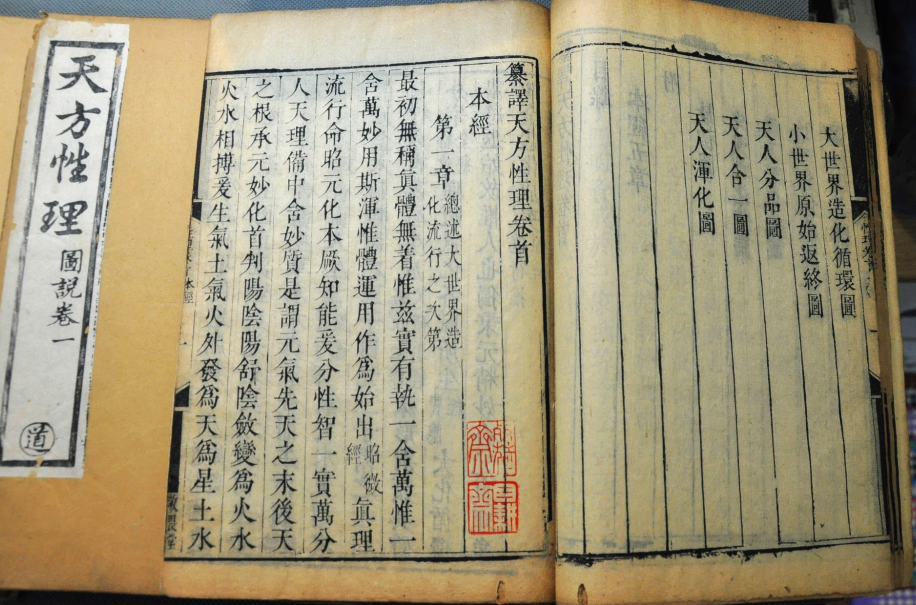 大世界造化循環圖
小世界原始返終圖
天人分品圖
天人合一圖
天人渾化圖
纂譯天方性理卷首
本經
第一章
總述大世界造
化流行之次第
最初無稱眞體無着惟兹實有執一含萬惟一
含萬妙用斯渾惟體運用作爲始出昭微經眞理
流行命昭元化本厥知能爰分性智一實萬分
人天理備中含妙質是謂元氣先天之末後天
之根承元妙化首判陽陰陽舒陰斂變爲火水
火水相搏爰生氣土氣火外發爲天爲星土水
天方性理
圖説卷一
道